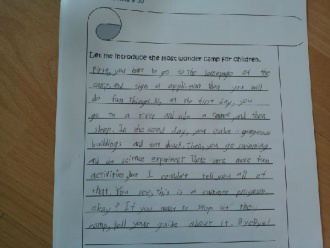 Let me introduce the most wonder camp for children.
First, you have to go to the homepage of the
camp and sign a application that you will
do fun things. At the first day, you
go to a river and a and then
sleep. In the second day, you make gorgeous
buildings and eat lunch. Then, you go swimming
and do science experiment. There were more fun
activities, but I couldn't tell you all of
that. You see, this is a program
okay? If you want to sign up the
camp, tell your guide about it. Bye Bye!